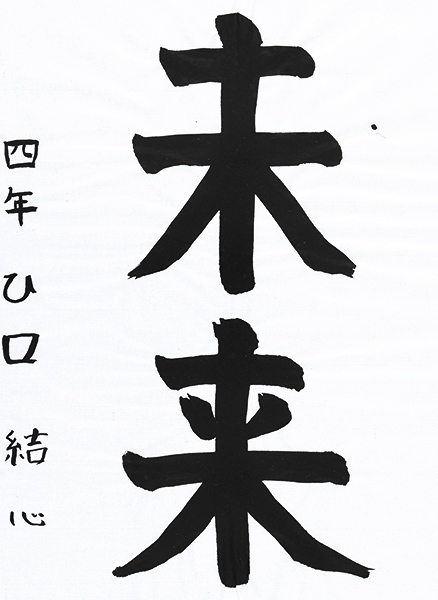 未来
四年 ひ口 結心